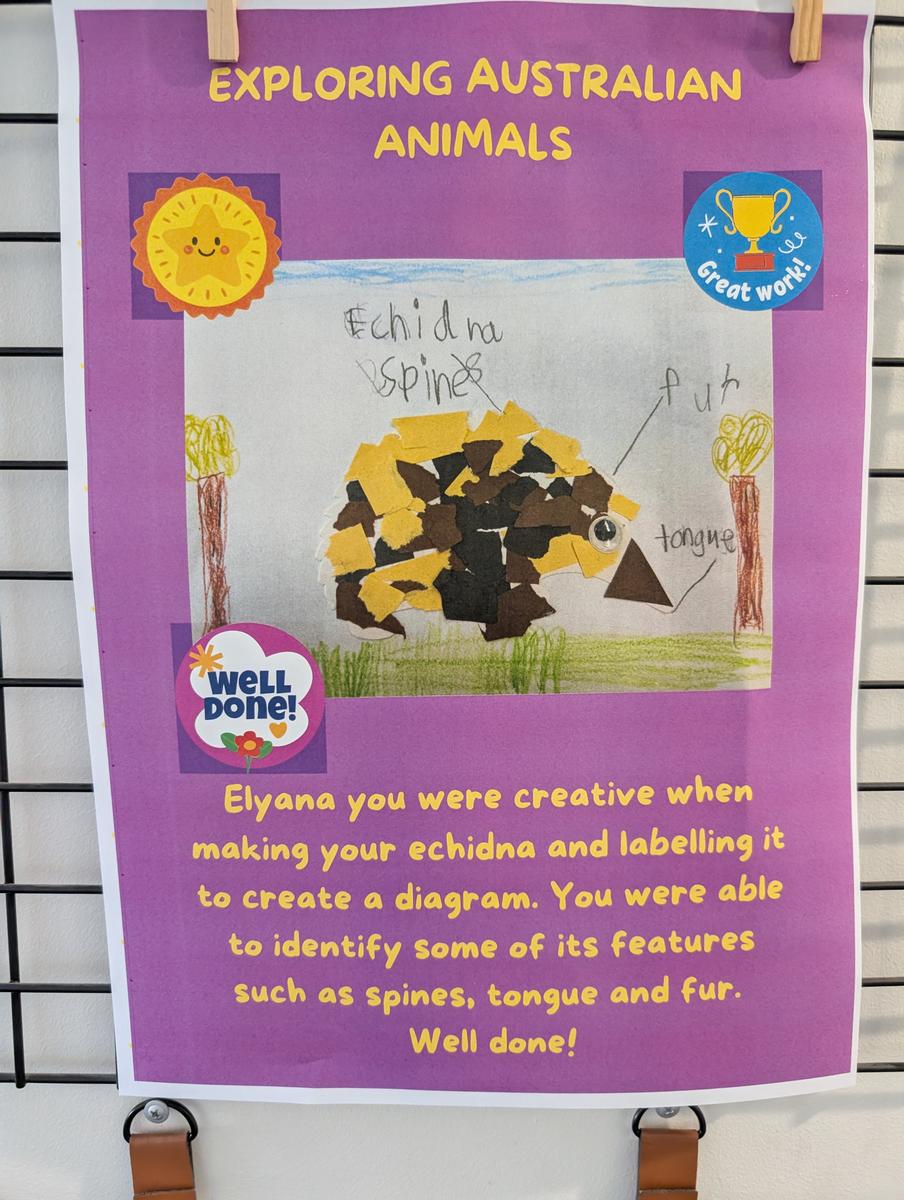 EXPLORING AUSTRALIAN
ANIMALS
Great work!
Echidna
spines
fur
tongue
Well
Done!
Elyana you were creative when
making your echidna and labelling it
to create a diagram. You were able
to identify some of its features
such as spines, tongue and fur.
Well done!